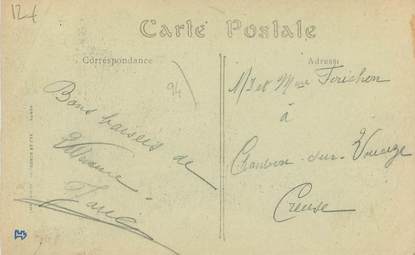 12f
Carte Postale
Correspondance
Adresse
94
Bons baisers de
M et Mme Forichon
à
Chambon-sur-Voueize
Creuse